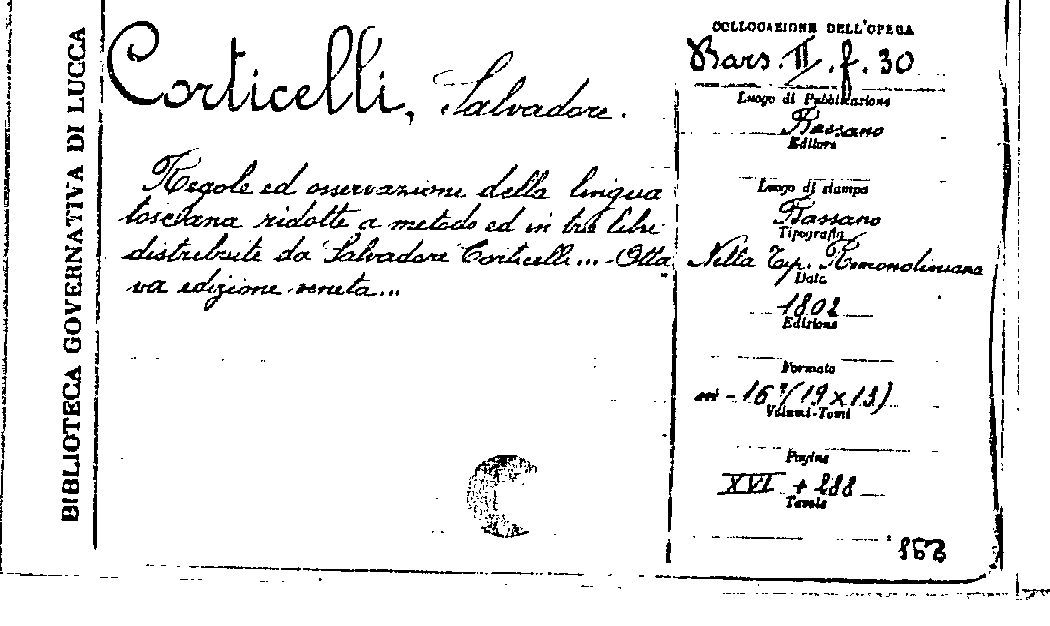 BIBLIOTECA GOVERNATIVA DI LUCCA
Corticelli, Salvadore.
Regole ed osservazione della lingua
toscana ridotte a metodo ed in tre libri
distribuite da Salvadore Corticelli... - Otta
va edizione veneta...
COLLOCAZIONE DELL'OPERA
Bars. II. f. 30
Luogo di Pubblicazione
Bassano
Editore
Luogo di stampa
Bassano
Tipografia
Nella Tip. Remondiniana
Data
1802
Edizione
Formato
in-16° (19 x 13)
Volumi-Tomi
Pagine
XVI + 288
Tavole